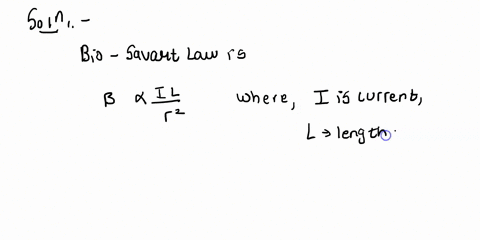 Soln. -
Bio - Savart Law is
B ∝ IL/r² where, I is current,
L → length